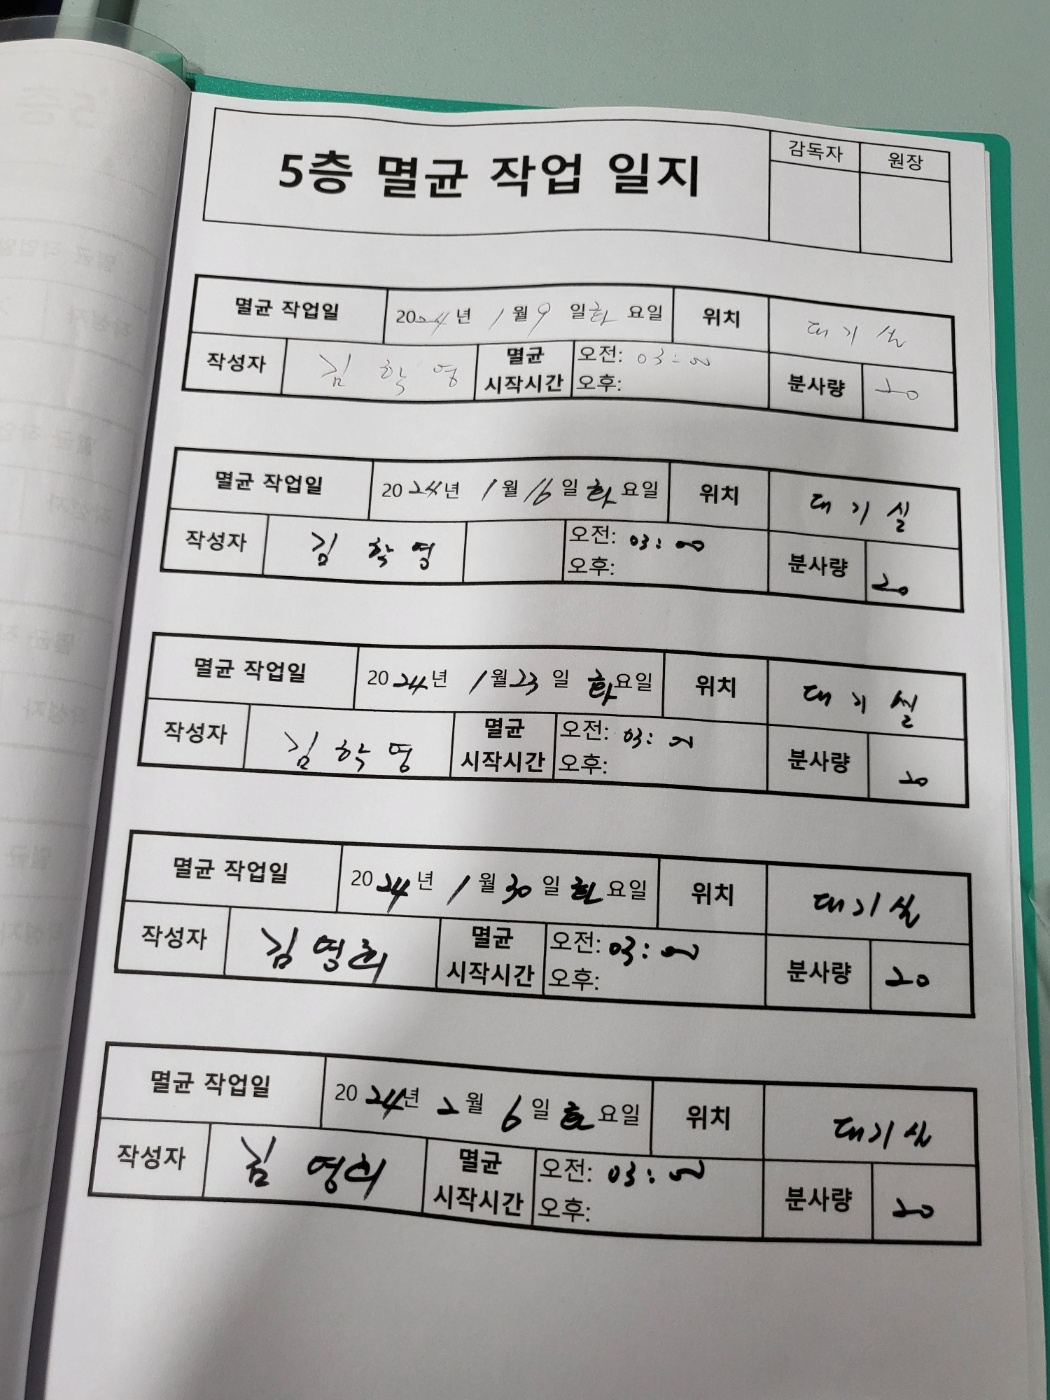 5층 멸균 작업 일지
감독자 원장
멸균 작업일 2024년 1월 9일 화요일 위치 대기실
작성자 김학영 멸균 시작시간 오전: 03:00 분사량 20
오후:
멸균 작업일 2024년 1월 16일 화요일 위치 대기실
작성자 김학영 오전: 03:00 분사량 20
오후:
멸균 작업일 2024년 1월 23일 화요일 위치 대기실
작성자 김학영 멸균 시작시간 오전: 03:00 분사량 20
오후:
멸균 작업일 2024년 1월 30일 화요일 위치 대기실
작성자 김영희 멸균 시작시간 오전: 03:00 분사량 20
오후:
멸균 작업일 2024년 2월 6일 화요일 위치 대기실
작성자 김영희 멸균 시작시간 오전: 03:00 분사량 20
오후: